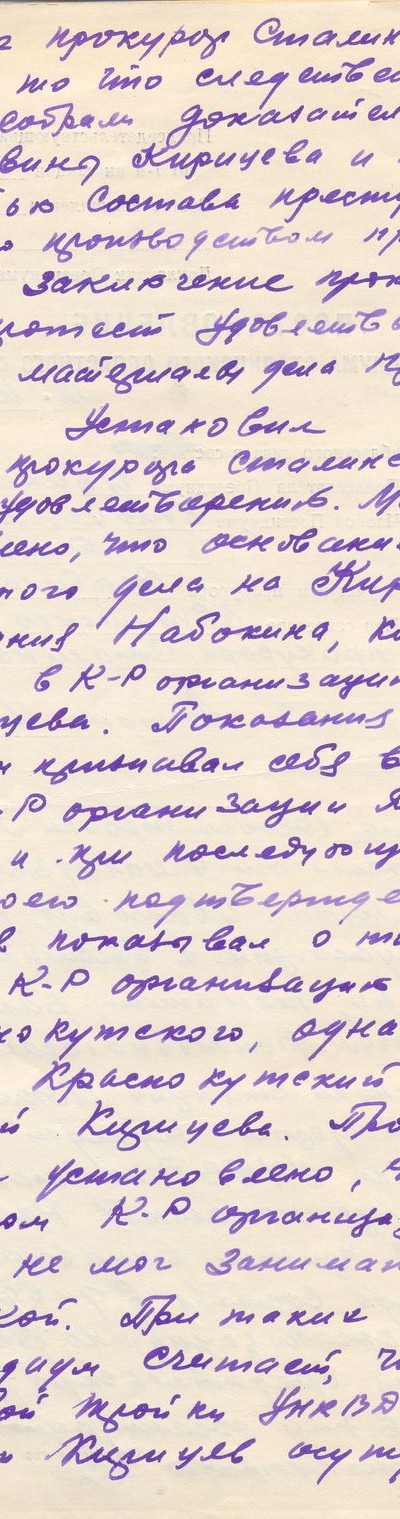 прокурор Сталин
то что следстве
собрали доказател
вины Кирицева и
ью состава престу
производством пр
Заключение прок
протест удовлетв
материалы дела пр
Установил
прокурора Сталинс
удовлетворению. М
лено, что основани
того дела на Кир
ния Набокина, ко
в К-Р организаци
цева. Показания
признавал себя в
-Р организации
и при последующ
оего подтвержде
в показывал о т
К-Р организации
нокутского, одна
Краснокутский
й Кирицева. Про
установлено, ч
ом К-Р организа
не мог занимат
кой. При таких
диум считает, ч
ой тройки УНКВД
Кирицев осуж